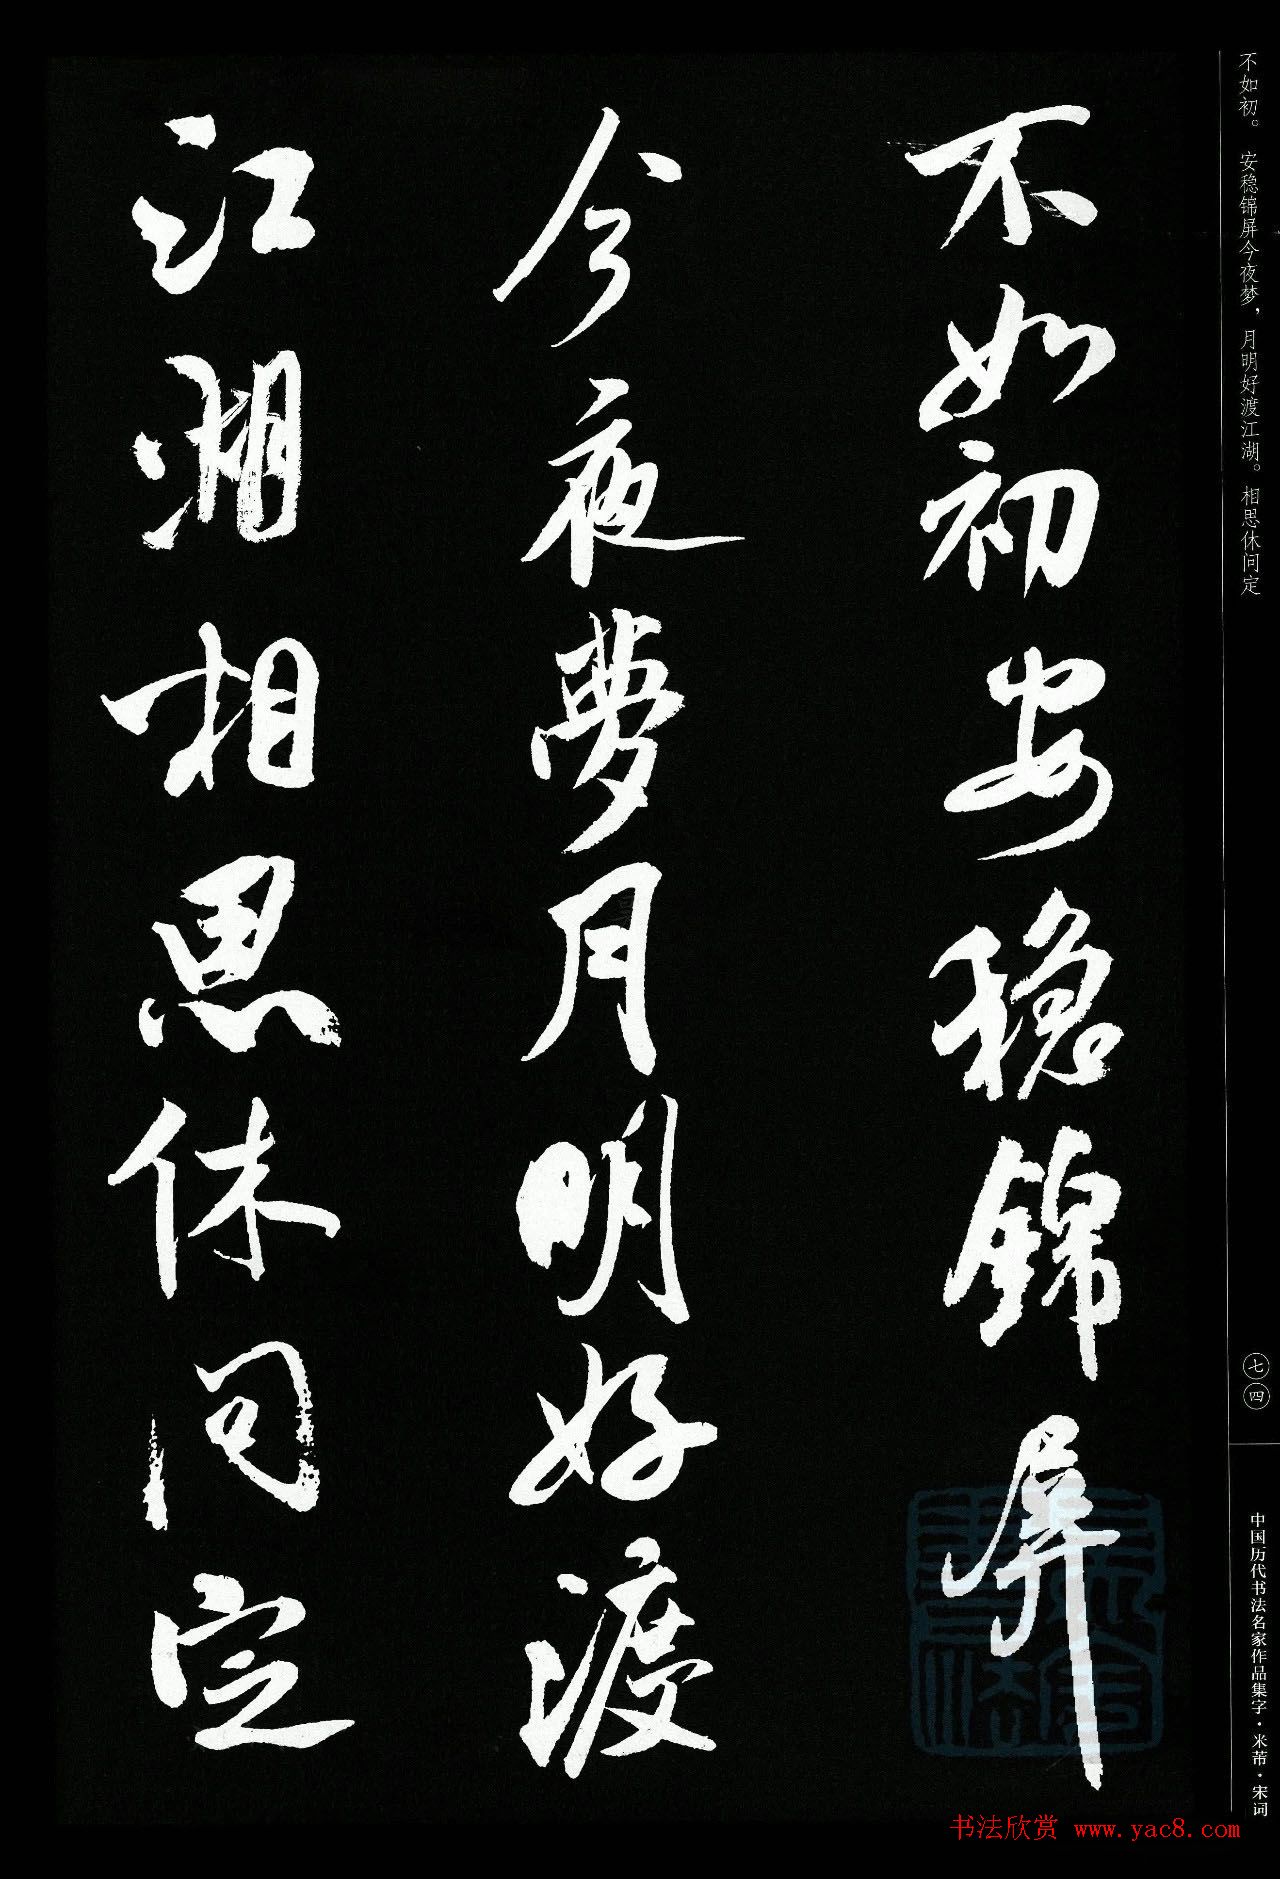 不如初安稳锦屏
今夜夢月明好渡
江湖相思休问定
不如初。安稳锦屏今夜梦，月明好渡江湖。相思休问定
七四
中国历代书法名家作品集字·米芾·宋词
书法欣赏 www.yac8.com